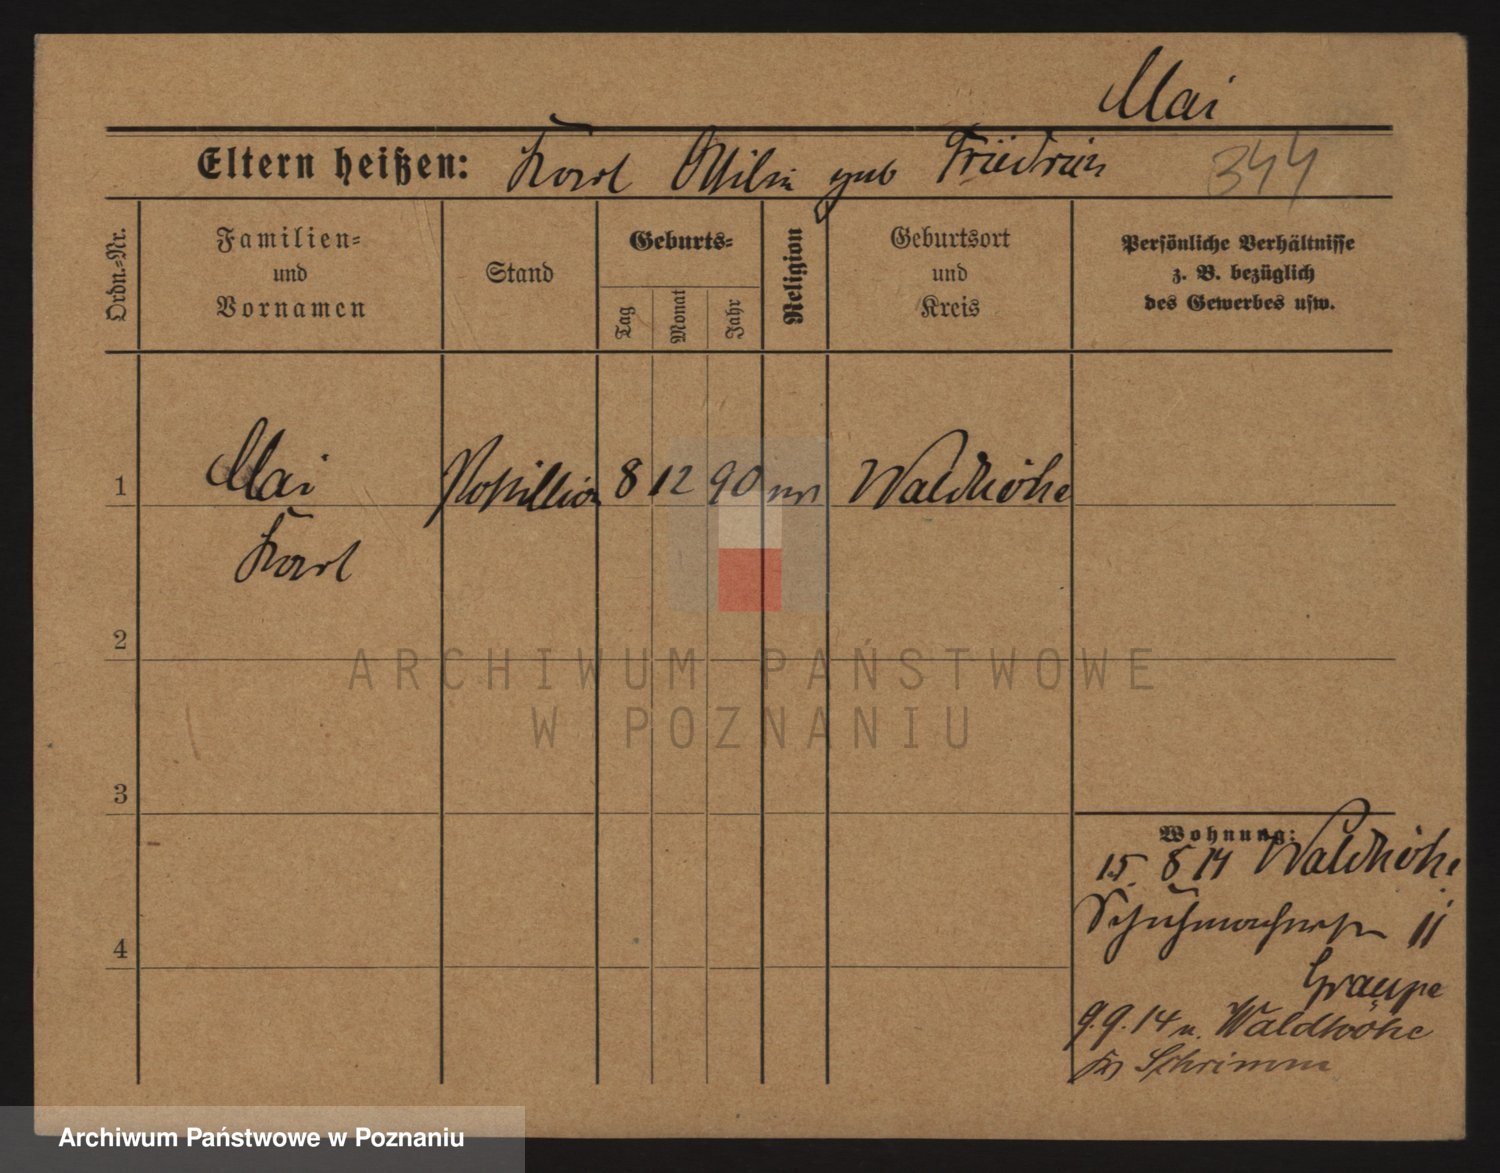 Mai
Eltern heißen: Karl Ottilie geb Friedrich
344
Ordn.-Nr.
Familien-
und
Vornamen
Stand
Geburts-
Tag
Monat
Jahr
Religion
Geburtsort
und
Kreis
Persönliche Verhältnisse
z. B. bezüglich
des Gewerbes usw.
1 Mai Postillion 8 12 90 Waldhöhe
Karl
2
3
4
Wohnung:
15. 8 14 Waldhöhe
Schuhmacherstr 11
Graupe
9.9.14 n. Waldhöhe
Kr Schrimm
ARCHIWUM PAŃSTWOWE
W POZNANIU
Archiwum Państwowe w Poznaniu